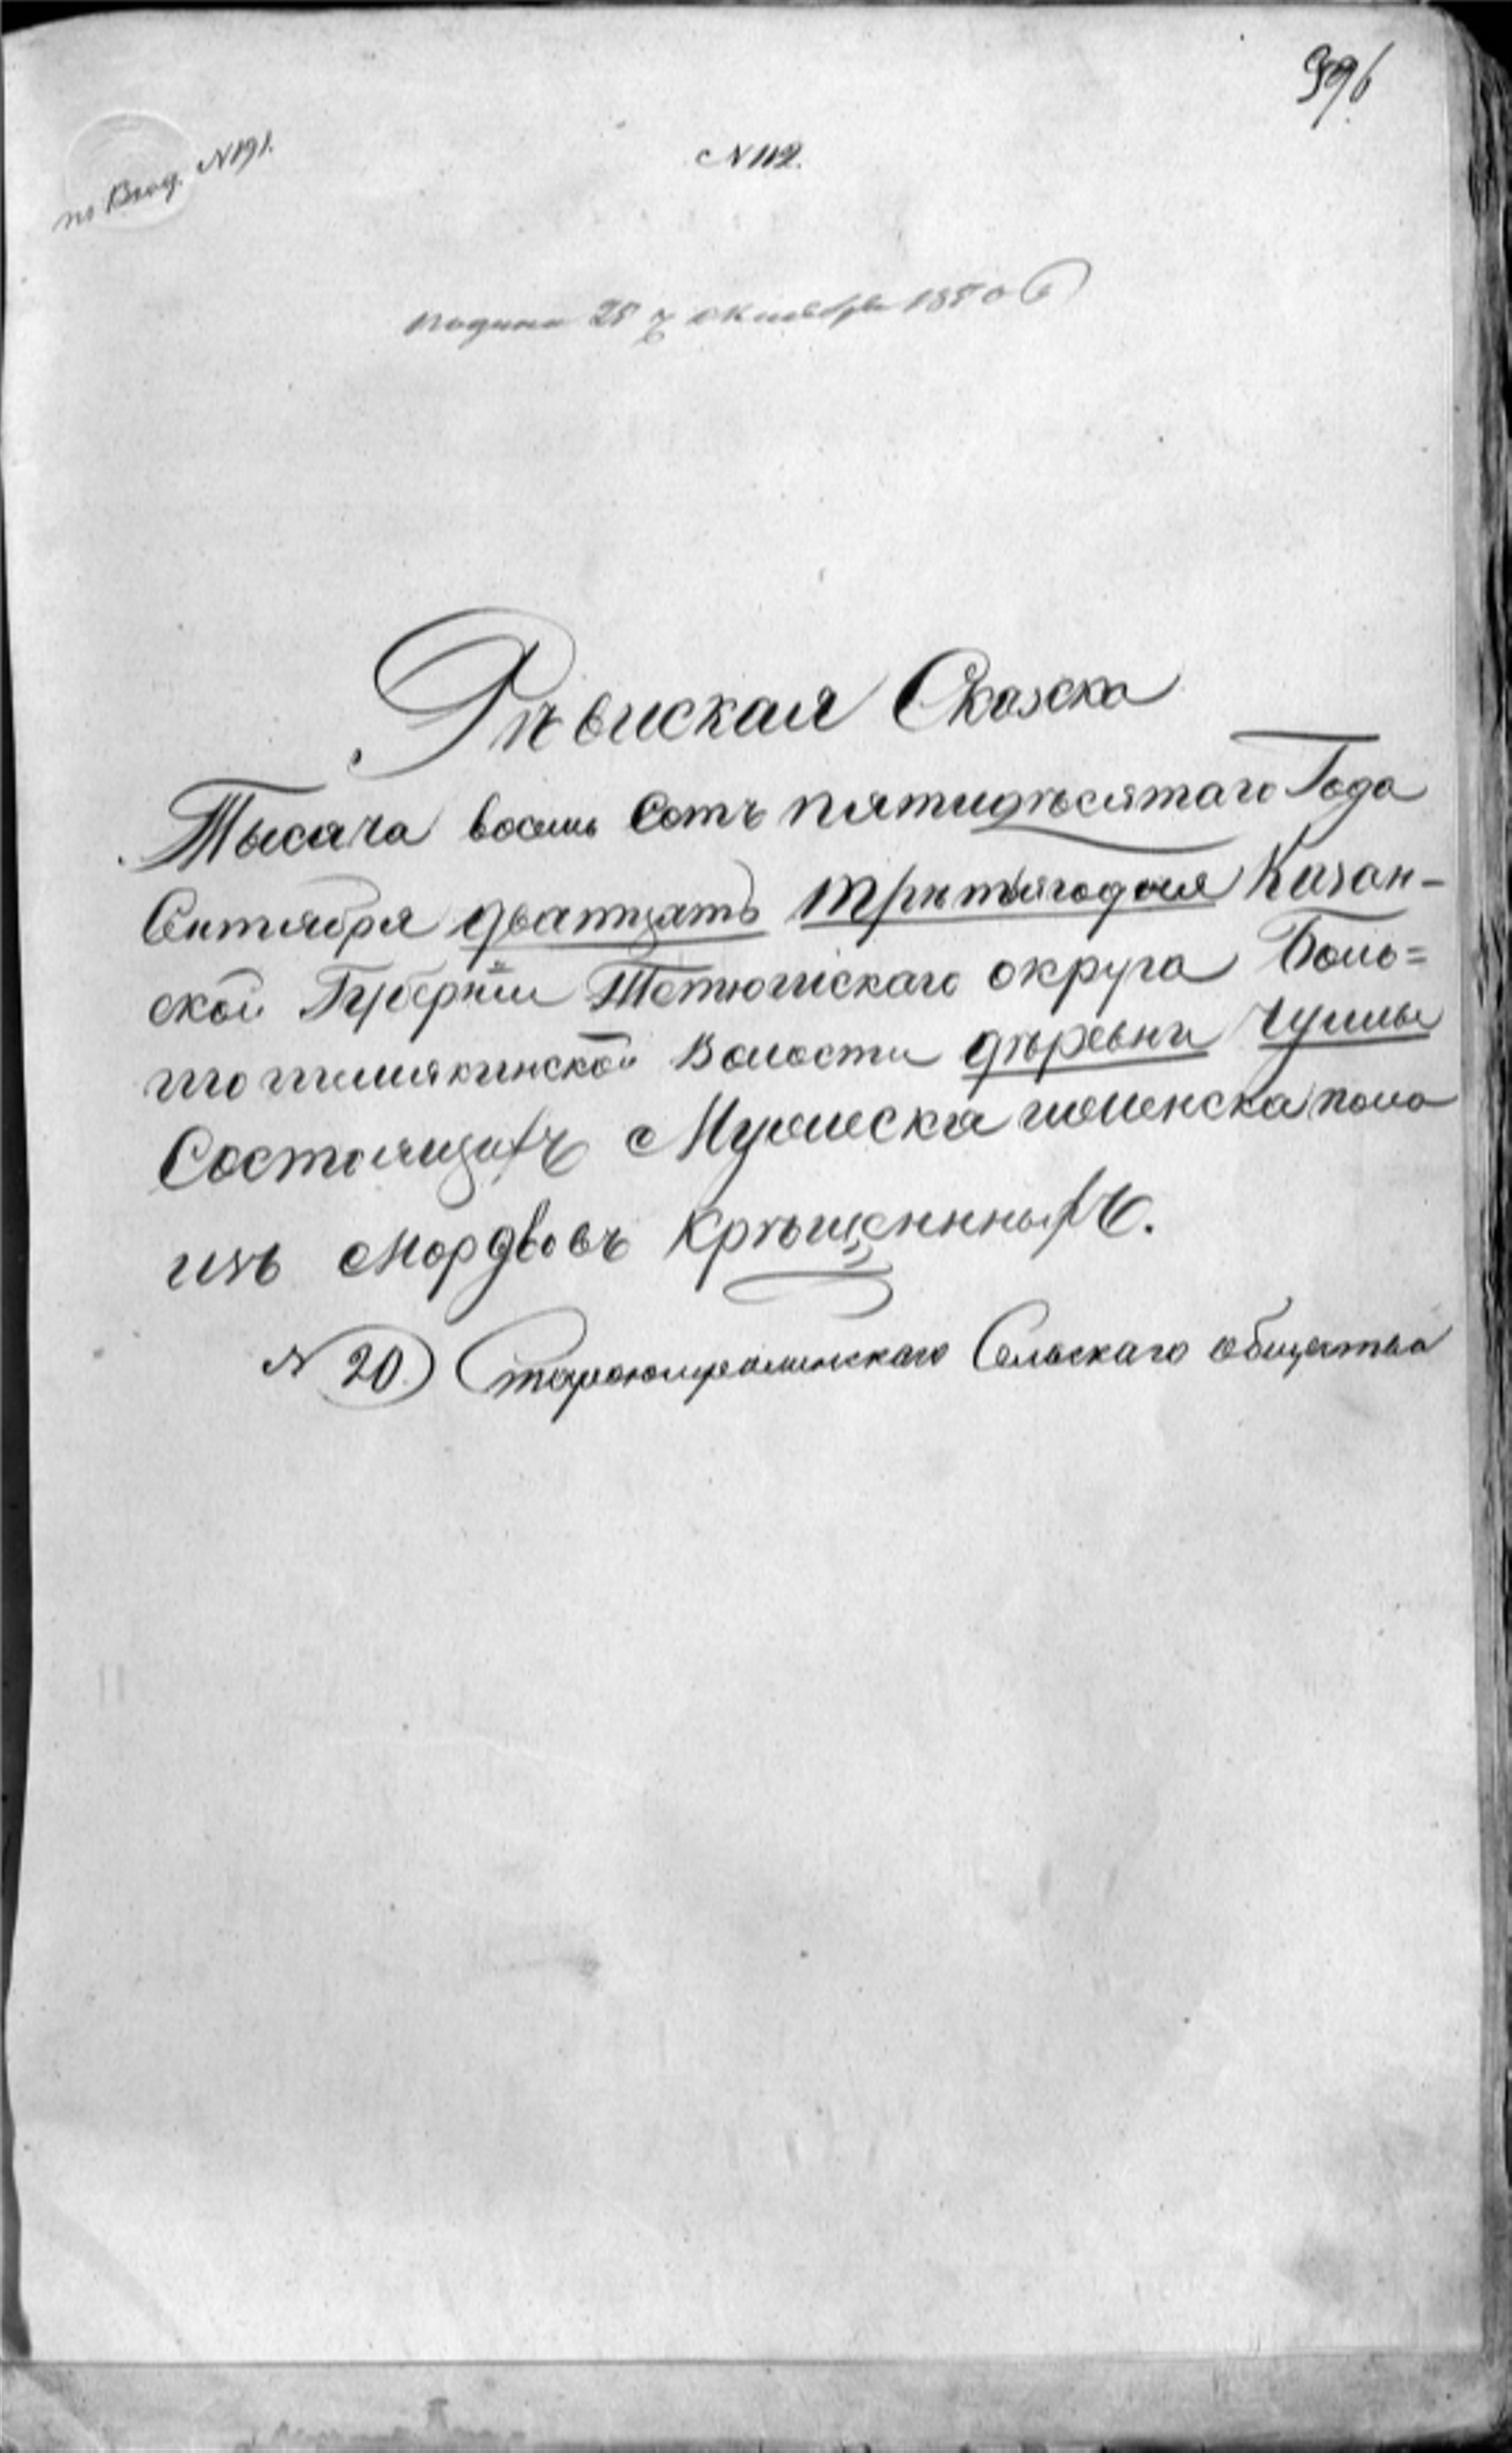 396
по Вход. N 191.
N 112.
Подана 25 г. октября 1850 г
Рѣвиская Сказска
Тысяча восемь Сотъ пятидѣсятаго Года
Сѣнтября дватцать трѣтьягодня Казан-
ской Губернiи Тѣтюшскаго округа Боль-
шо Волости дѣревни
Состоящихъ Мужеска иженска пола
изъ Мордвовъ Крѣщенныхъ.
N 20. Сельскаго общества